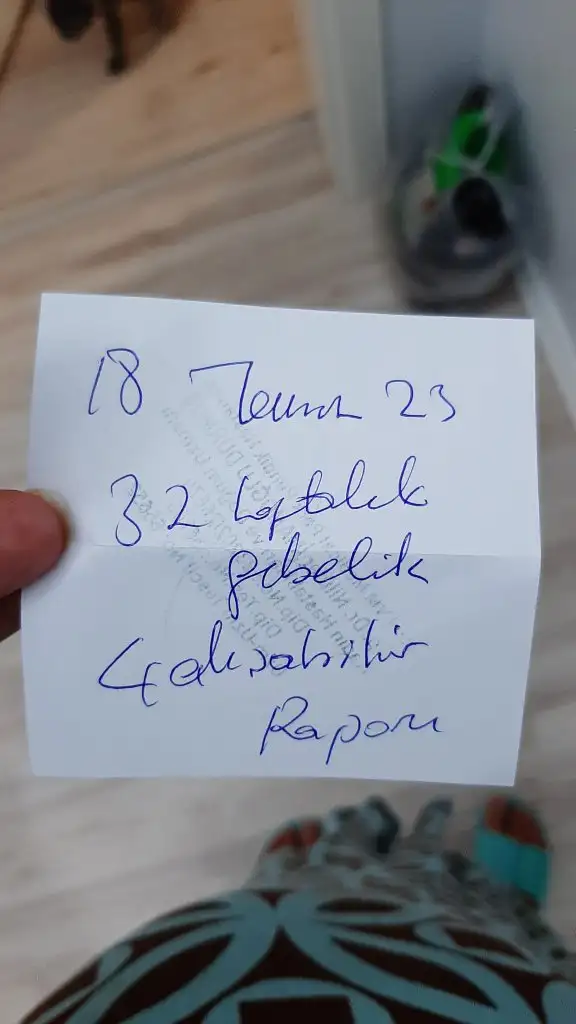 18 Temmuz 23
32 haftalık
gebelik
Çalışabilir
Raporu